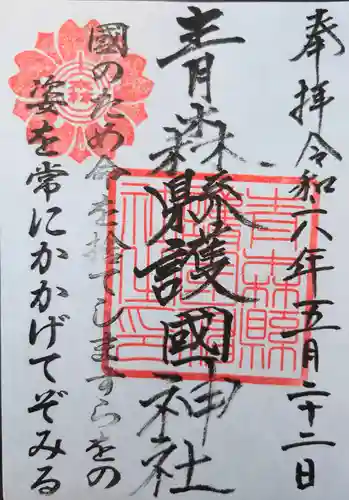 奉拝令和六年五月二十二日
青森縣護國神社
國のため命を捨てしますらをの
姿を常にかかげてぞみる
森